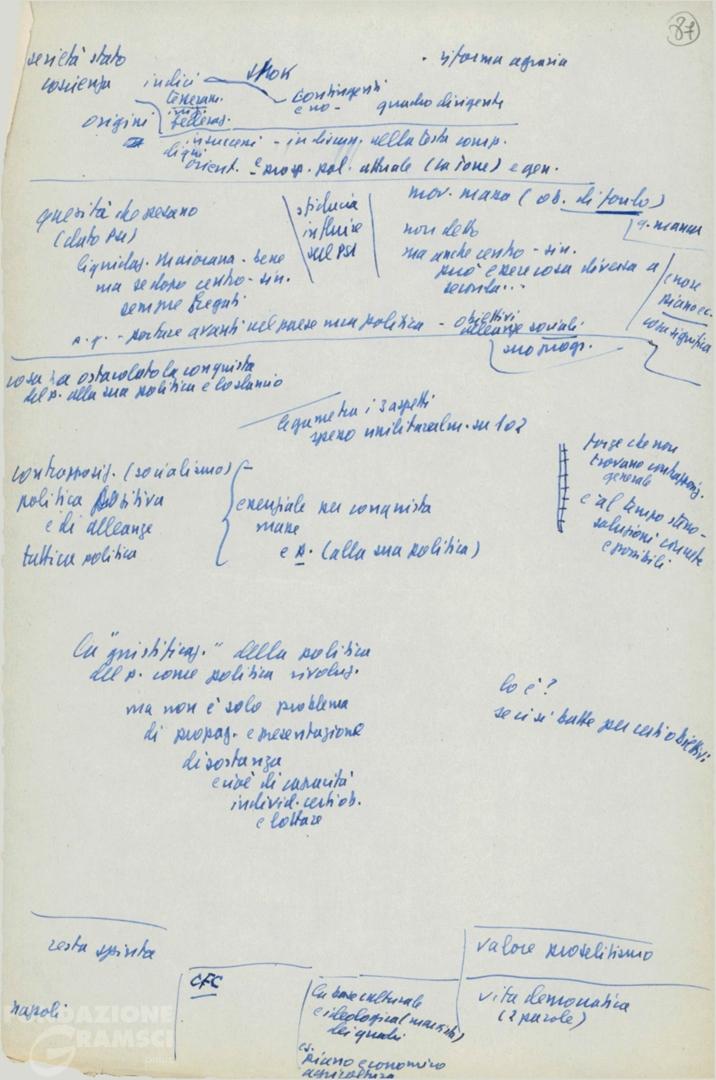 87
serietà stato
coscienza
indici
tesseram.
feder.
origini
contingenti
e no -
quadro dirigente
. riforma agraria
insuccessi - indiscus. nella testa comp.
di qui
orient. e prosp. pol. attuale (la ione) e gen.
quesità che pesano
(dato PSI)
liquidaz. maiorana - bene
ma se dopo centro - sin.
sempre fregati
sfiducia
influire
sul PSI
mov. massa (ob. di fondo)
non detto
ma anche centro - sin.
può essere cosa diversa a
seconda...
piano ec.
cosa significa
p. g. - portare avanti nel paese una politica - obiettivi
alleanze sociali
suo progr.
cosa ha ostacolato la conquista
del p. alla sua politica e lo slancio
legame tra i 3 aspetti
spesso unilateralm. su 1 o 2
contrapposiz. (socialismo)
politica positiva
e di alleanze
tattica politica
essenziale per conquista
masse
e p. (alla sua politica)
forze che non
trovano contrapposiz.
generale
e al tempo stesso -
soluzioni concrete
e possibili
la "giustificaz." della politica
del p. come politica rivoluz.
ma non è solo problema
di propag. e presentazione
di sostanza
e cioè di capacità
individ. certi ob.
e lottare
lo è?
se ci si batte per certi obiettivi
resta spinta
valore proselitismo
napoli
CFC
la base culturale
e ideologica (marxista)
dei quadri
es.
piano economico
agricoltura
vita democratica
(2 parole)
FONDAZIONE
GRAMSCI